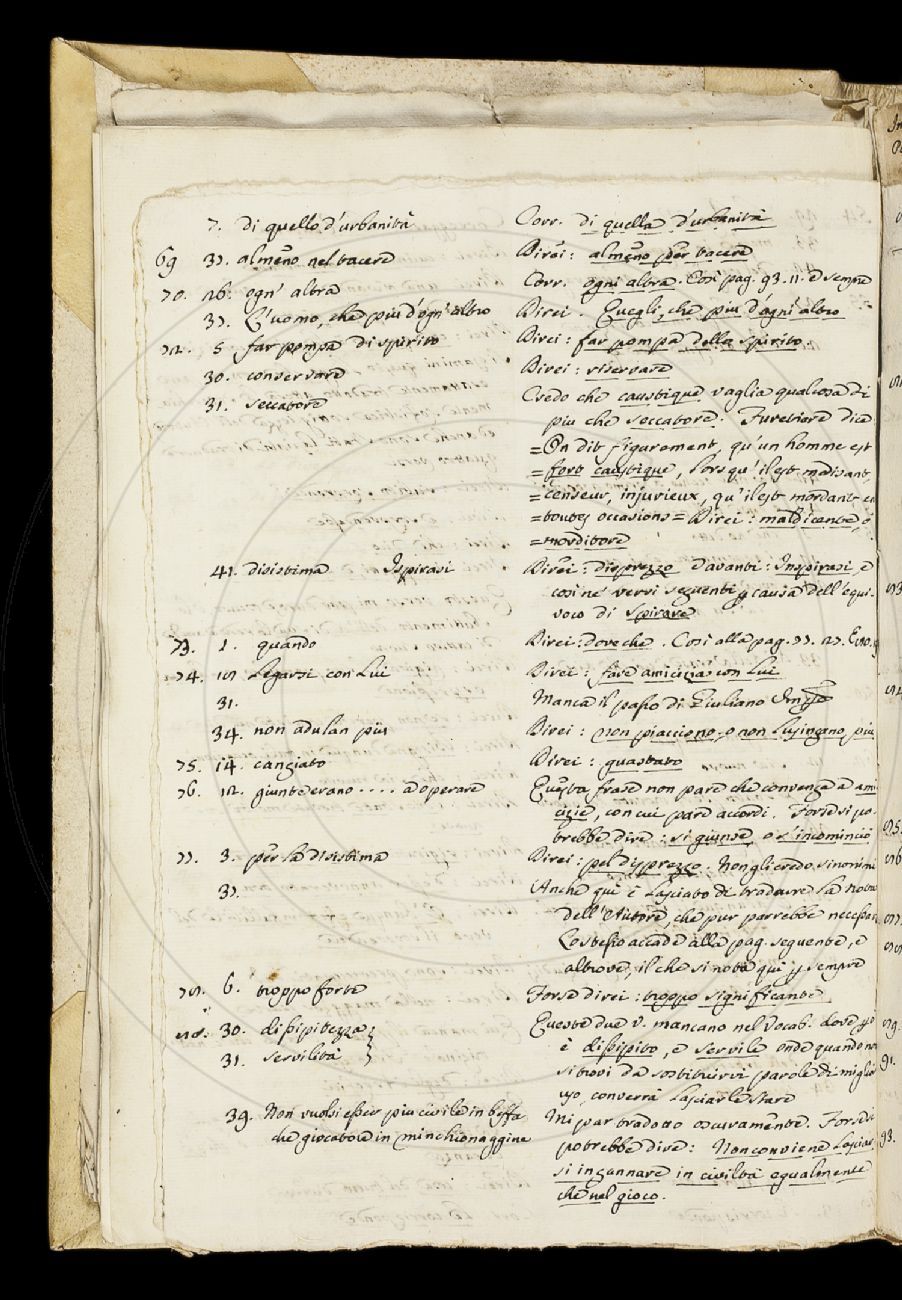 7. di quello d'urbanità Corr. di quella d'urbanità
69 37. almeno nel tacere Direi: almeno per tacere
70. 26. ogn' altra Corr. ogni altra. Così pag. 93. 11. e sempre
37. L'uomo, che piu d'ogn' altro Direi. Quegli, che piu d'ogni altro
72. 5 far pompa di spirito Direi: far pompa dello spirito.
30. conservare Direi: riservare
31. seccatore Credo che caustique vaglia qualcosa di
piu che seccatore. Furetiere dice
=On dit figurement, qu'un homme est
=fort caustique, lors qu'il est medisant
=censeur, injurieux, qu'il est mordant en
=toutes occasions= Direi: maldicente, o
=morditore
41. disistima Ispirasi Direi: disprezzo davanti: Inspirasi, e
così ne' versi seguenti p causa dell'equi-
voco di Spirare
73. 1. quando Direi: dove che. Così alla pag. 77. 27.
74. 12 Legarsi con Lui Direi: fare amicizia con Lui
31. Manca il passo di Giuliano
34. non adulan piu Direi: non piacciono, o non Lusingano piu
75. 14. cangiato Direi: guastato
76. 12. giunte erano .... adoperare Questa frase non pare che convenga a ami-
cizie, con cui pare accordi. Forse si po-
trebbe dire: si giunse, o s'incominciò
77. 3. per la disistima Direi: pel disprezzo. Non gli credo sinonimi
37. Anche qui è Lasciato di tradurre La nota
dell'Autore, che pur parrebbe necessaria
Lo stesso accade alla pag. seguente, e
altrove, il che si noti qui p sempre
78. 6. troppo forte Forse direi: troppo significante
78. 30. dissipitezza } Queste due v. mancano nel Vocab. dove
31. servilità } è dissipito, e servile onde quando non
si trovi da sostituirvi parole di miglior
uso, converrà Lasciarle stare
39. Non vuolsi esser piu civile in beffa, Mi par tradotto oscuramente. Forse si
che giocatore in minchionaggine potrebbe dire: Non conviene Lasciar-
si ingannare in civiltà egualmente
che nel gioco.